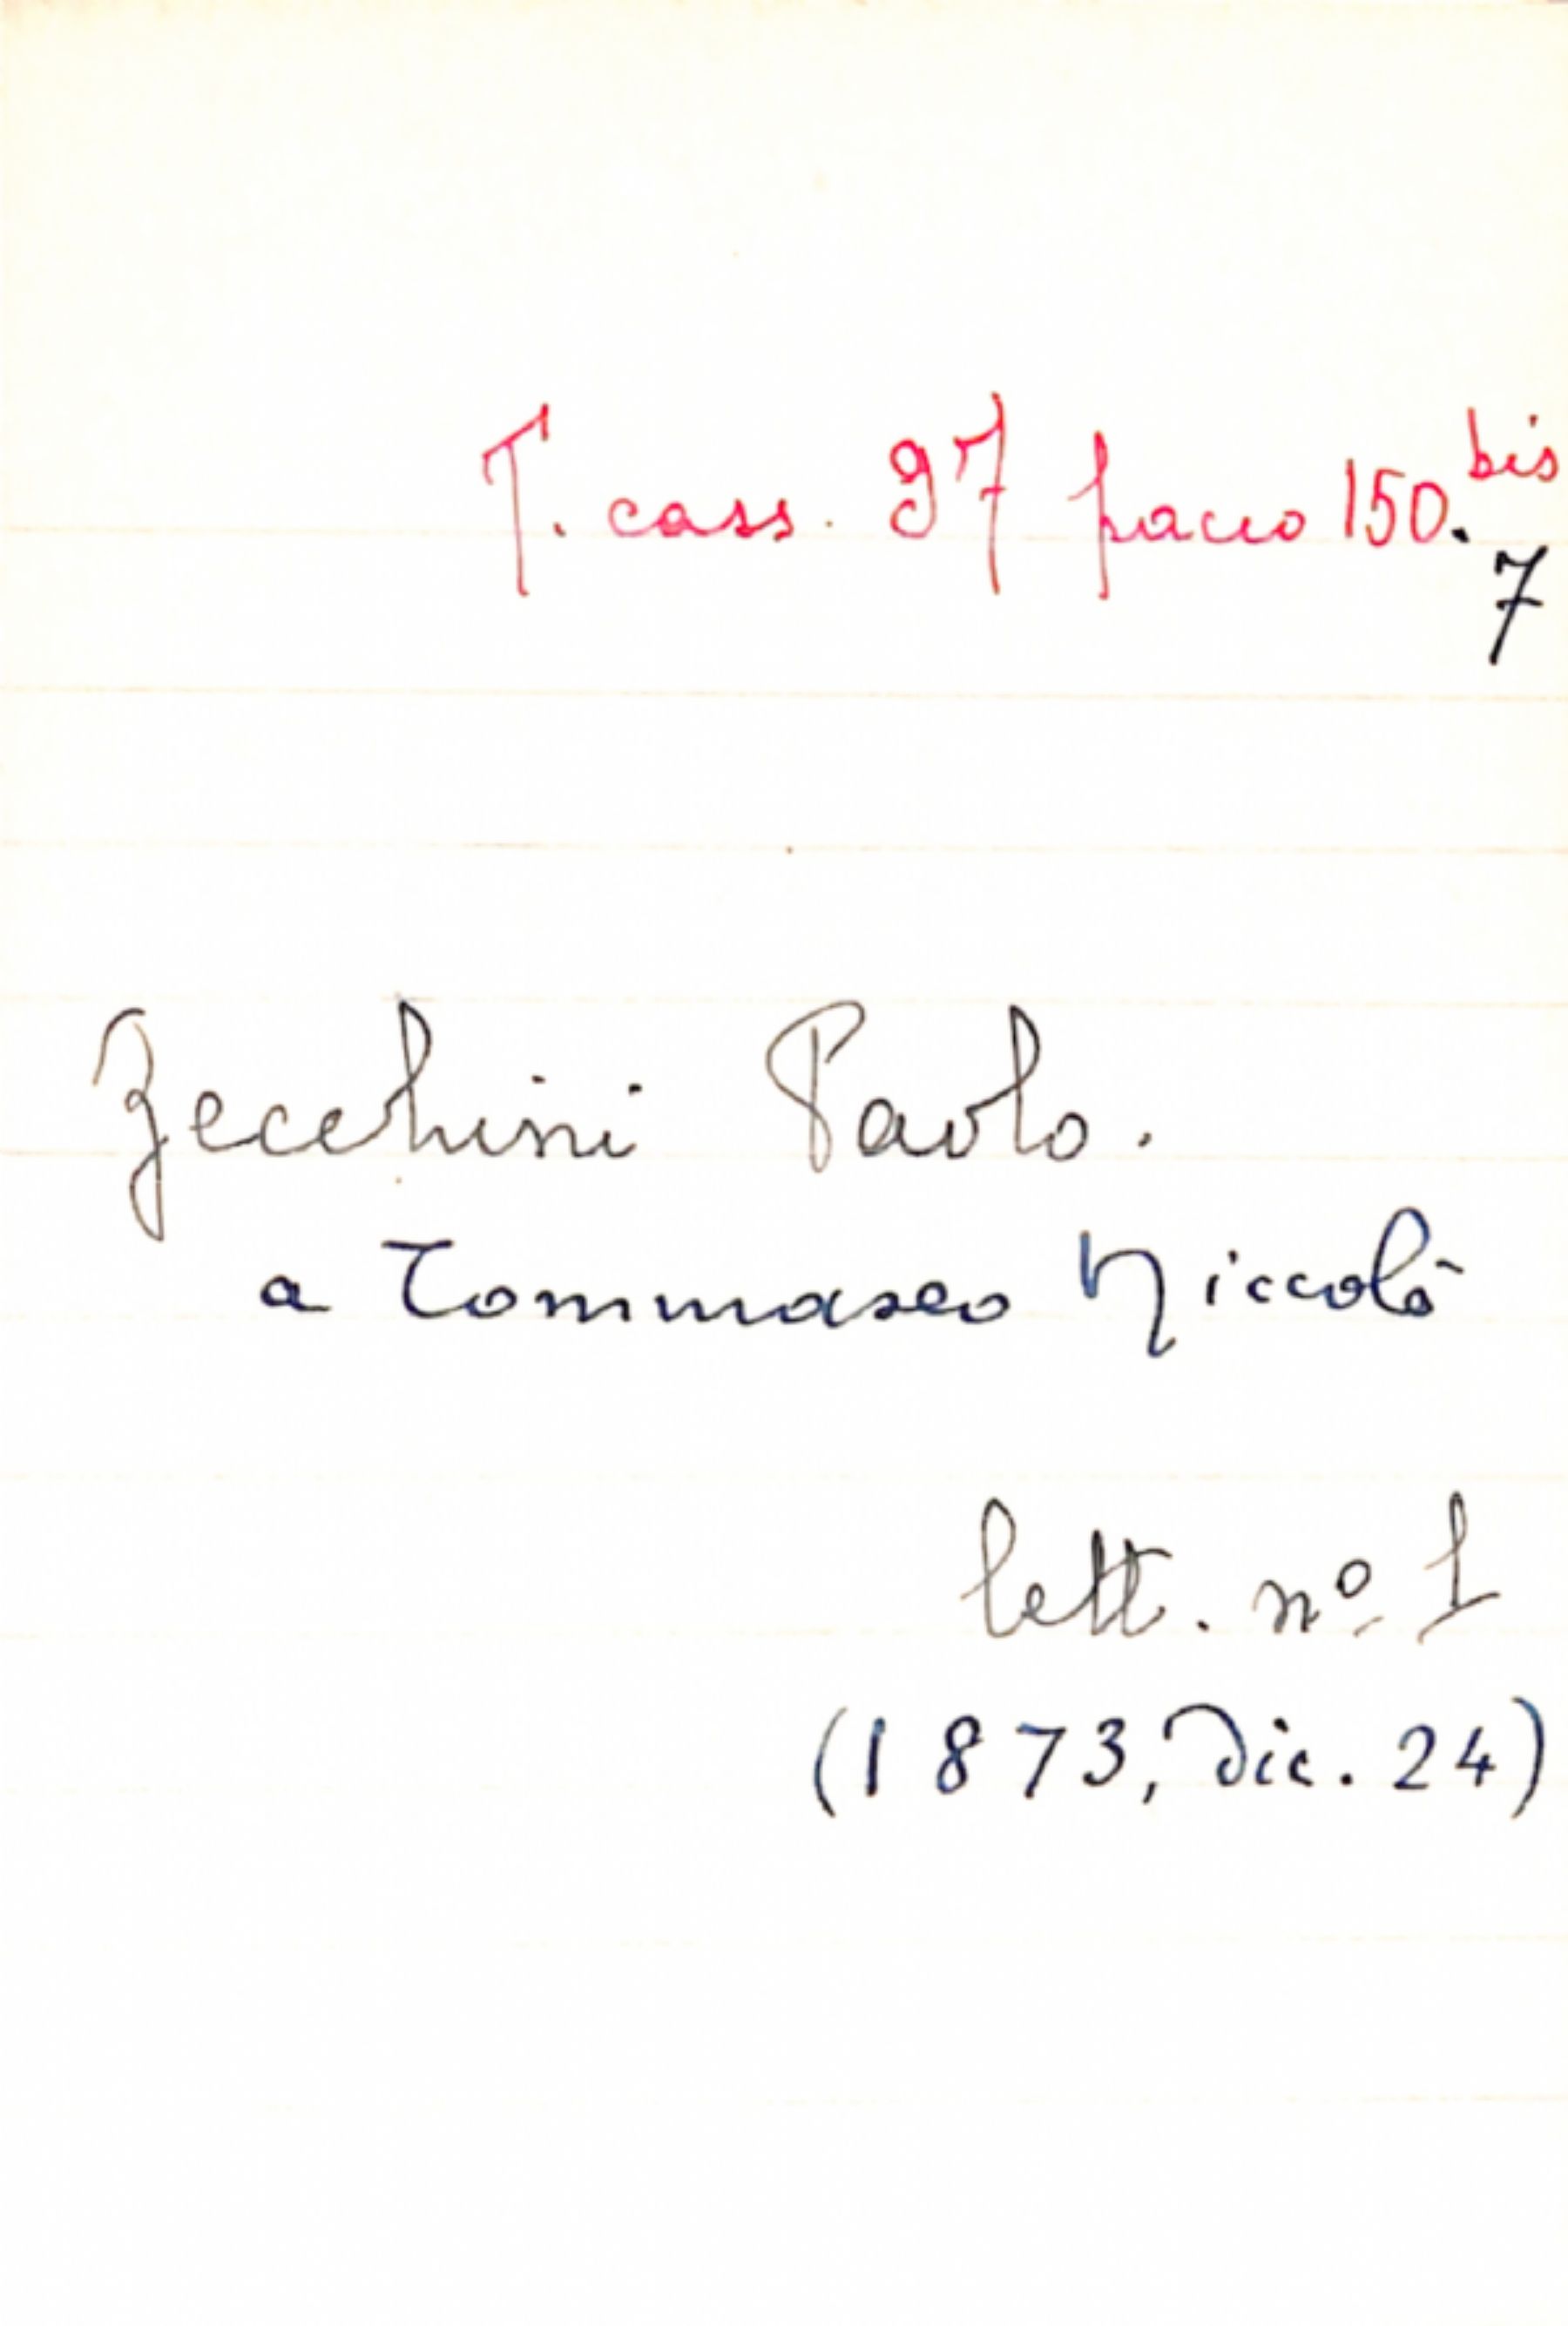 T. cass. 97 pacco 150. bis
7
Zecchini Paolo.
a Tommaseo Niccolò
lett. nº 1
(1873, dic. 24)